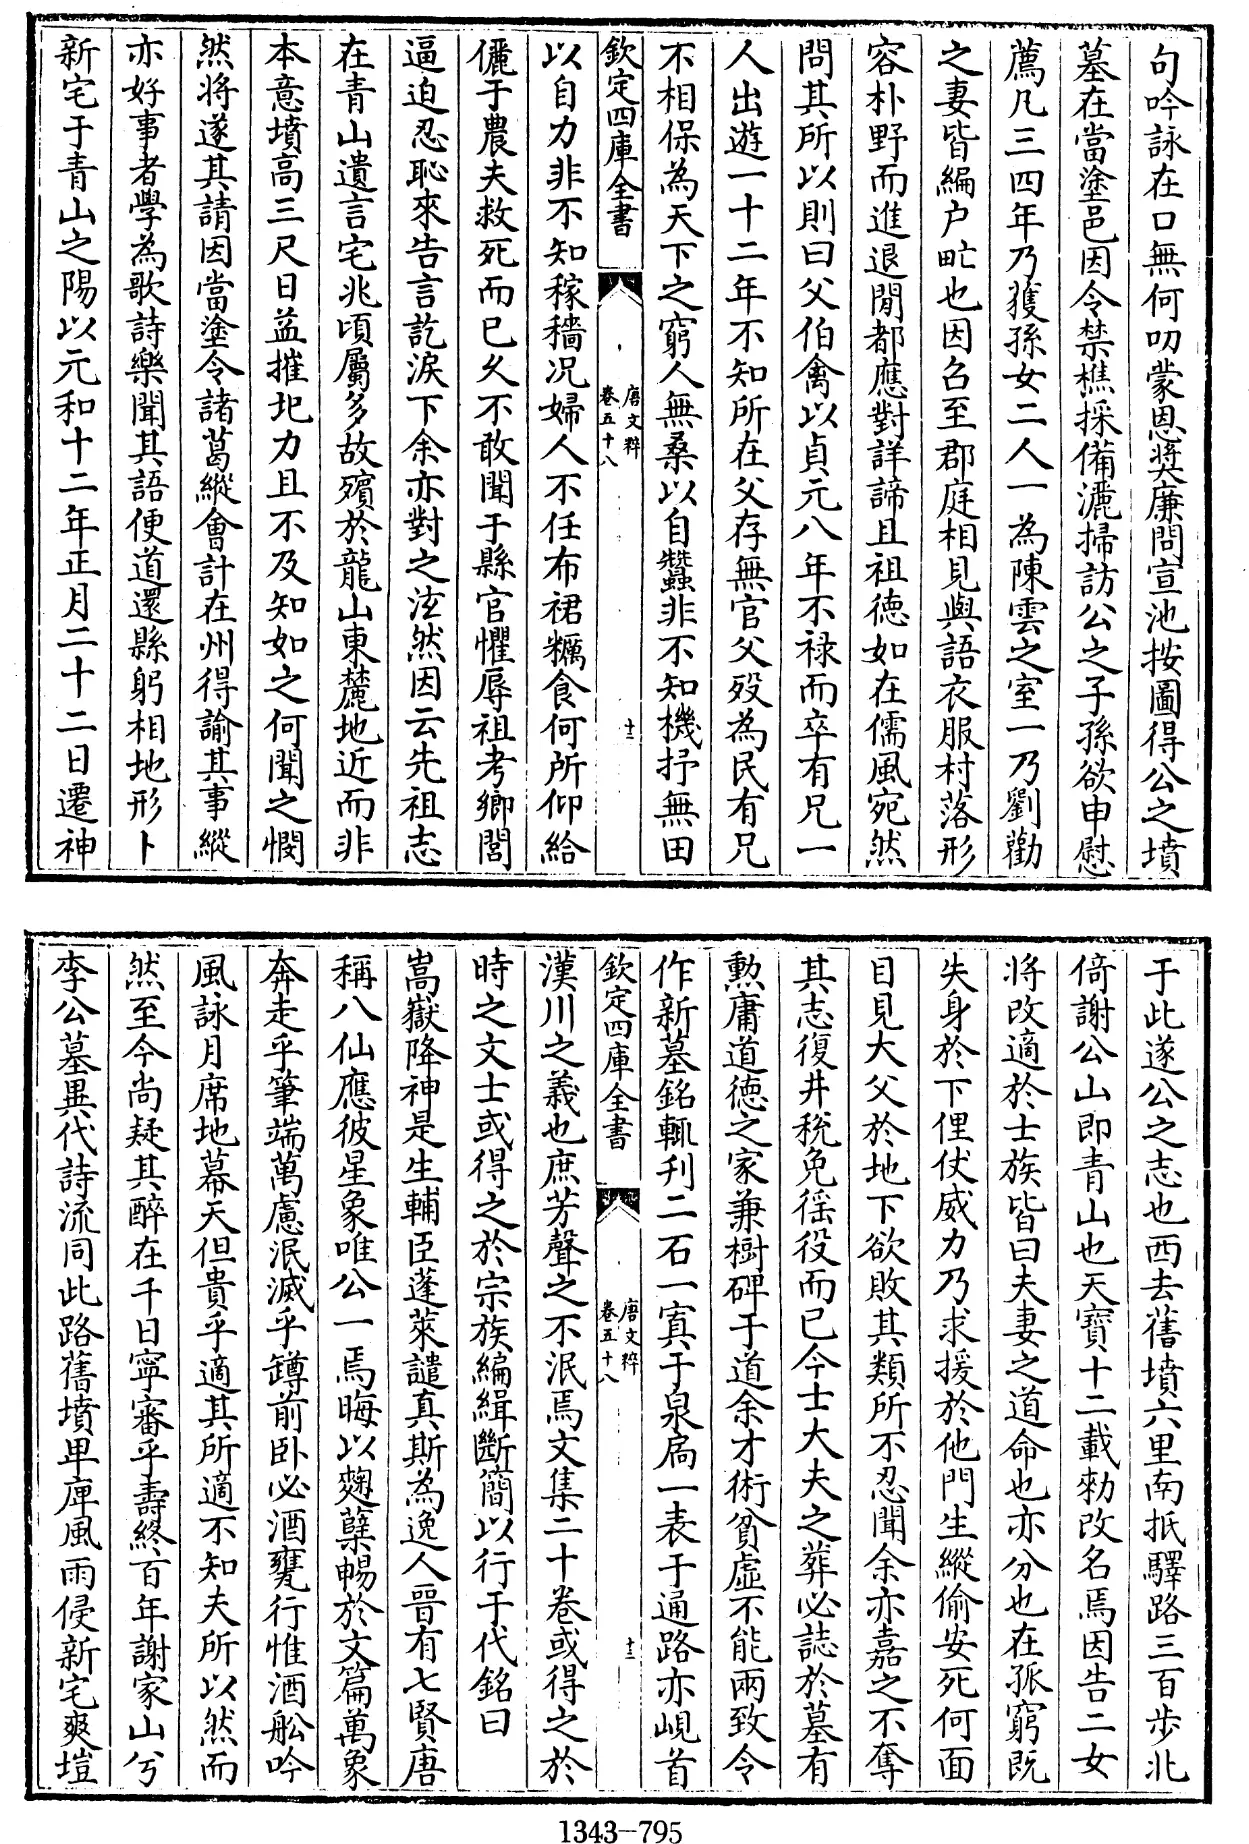 句吟詠在口無何叨蒙恩奬廉問宣池按圖得公之墳
墓在當塗邑因令禁樵採備灑掃訪公之子孫欲申慰
薦凡三四年乃獲孫女二人一為陳雲之室一乃劉勸
之妻皆編户甿也因召至郡庭相見與語衣服村落形
容朴野而進退閒都應對詳諦且祖徳如在儒風宛然
問其所以則曰父伯禽以貞元八年不禄而卒有兄一
人出遊一十二年不知所在父存無官父殁為民有兄
不相保為天下之窮人無桑以自蠶非不知機抒無田
欽定四庫全書
唐文粹
卷五十八
十二
以自力非不知稼穡况婦人不任布裙糲食何所仰給
儷于農夫救死而已乆不敢聞于縣官懼辱祖考鄉閭
逼迫忍恥來告言訖淚下余亦對之泫然因云先祖志
在青山遺言宅兆頃屬多故殯於龍山東麓地近而非
本意墳高三尺日益摧圮力且不及知如之何聞之憫
然將遂其請因當塗令諸葛縱會計在州得諭其事縱
亦好事者學為歌詩樂聞其語便道還縣躬相地形卜
新宅于青山之陽以元和十二年正月二十二日遷神
于此遂公之志也西去舊墳六里南抵驛路三百步北
倚謝公山即青山也天寶十二載勑改名焉因告二女
將改適於士族皆曰夫妻之道命也亦分也在孤窮既
失身於下俚仗威力乃求援於他門生縱偷安死何面
目見大父於地下欲敗其類所不忍聞余亦嘉之不奪
其志復井税免徭役而已今士大夫之葬必誌於墓有
勲庸道徳之家兼樹碑于道余才術貧虚不能兩致今
作新墓銘輒刋二石一寘于泉扃一表于通路亦峴首
欽定四庫全書
唐文粹
卷五十八
十三
漢川之義也庶芳聲之不泯焉文集二十卷或得之於
時之文士或得之於宗族編緝斷簡以行于代銘曰
嵩嶽降神是生輔臣蓬萊譴真斯為逸人晉有七賢唐
稱八仙應彼星象唯公一焉晦以麴蘖暢於文篇萬象
奔走乎筆端萬慮泯滅乎罇前卧必酒甕行惟酒舩吟
風詠月席地幕天但貴乎適其所適不知夫所以然而
然至今尚疑其醉在千日寧審乎壽終百年謝家山兮
李公墓異代詩流同此路舊墳卑庳風雨侵新宅爽塏
1343-795